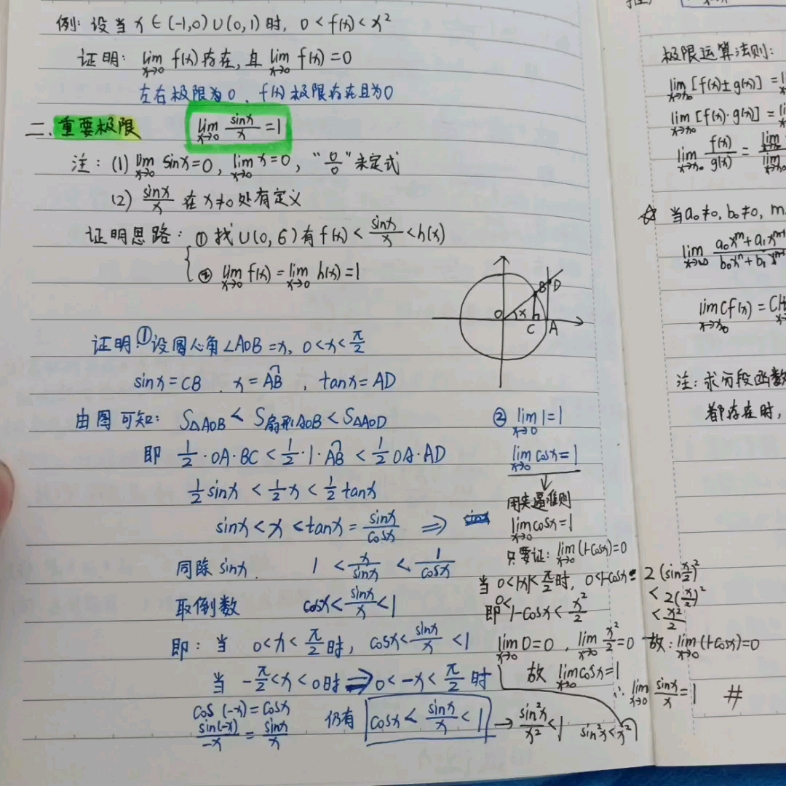 例: 设当 x ∈ (-1,0) ∪ (0,1) 时, 0 < f(x) < x²
证明: lim_{x→0} f(x) 存在, 且 lim_{x→0} f(x) = 0
左右极限为 0, f(x) 极限存在且为0
二. 重要极限 lim_{x→0} sinx/x = 1
注: (1) lim_{x→0} sinx = 0, lim_{x→0} x = 0, "0/0" 未定式
(2) sinx/x 在 x≠0 处有定义
证明思路: ① 找 U(0, δ) 有 f(x) < sinx/x < h(x)
② lim_{x→0} f(x) = lim_{x→0} h(x) = 1
B D
O x C A
证明: ① 设圆心角 ∠AOB = x, 0 < x < π/2
sinx = CB, x = AB, tanx = AD
由图可知: S△AOB < S扇形AOB < S△AOD
即 1/2 · OA · BC < 1/2 · 1 · AB < 1/2 OA · AD
1/2 sinx < 1/2 x < 1/2 tanx
sinx < x < tanx = sinx/cosx ⇒
同除 sinx. 1 < x/sinx < 1/cosx
取倒数 cosx < sinx/x < 1
即: 当 0 < x < π/2 时, cosx < sinx/x < 1
当 -π/2 < x < 0 时 ⇒ 0 < -x < π/2 时
cos(-x) = cosx
sin(-x)/-x = sinx/x
仍有 cosx < sinx/x < 1 → sin²x/x² < 1 sin²x < x²
② lim_{x→0} 1 = 1
lim_{x→0} cosx = 1
↓
用夹逼准则
lim_{x→0} cosx = 1
只要证: lim_{x→0} (1-cosx) = 0
当 0 < |x| < π/2 时, 0 < 1-cosx = 2(sin x/2)²
< 2(x/2)²
< x²/2
即 0 < 1-cosx < x²/2
lim_{x→0} 0 = 0, lim_{x→0} x²/2 = 0 故: lim_{x→0} (1-cosx) = 0
故 lim_{x→0} cosx = 1
∴ lim_{x→0} sinx/x = 1 #
极限运算法则:
lim_{x→x₀} [f(x) ± g(x)] =
lim_{x→x₀} [f(x) · g(x)] =
lim_{x→x₀} f(x)/g(x) = lim / lim
☆ 当 a₀≠0, b₀≠0, m
lim_{x→∞} a₀xᵐ + a₁xᵐ⁻¹ / b₀xⁿ + b₁xⁿ⁻¹
lim_{x→x₀} Cf(x) = C
注: 求分段函数
都存在时,